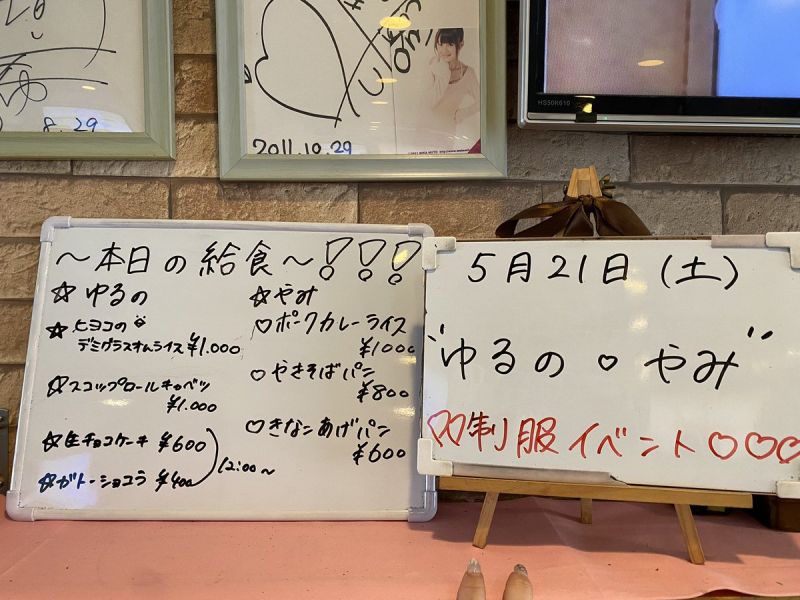 8.29
2011.10.29
HS50K610
~本日の給食~!!!
☆ゆるの
☆ヒヨコの
デミグラスオムライス ¥1.000
☆スコップロールキャベツ
¥1.000
☆生チョコケーキ ¥600
☆ガトーショコラ ¥400
12:00~
☆やみ
♡ポークカレーライス
¥1000
♡やきそばパン
¥800
♡きなこあげパン
¥600
5月21日(土)
"ゆるの♡やみ"
♡♡制服イベント♡♡♡